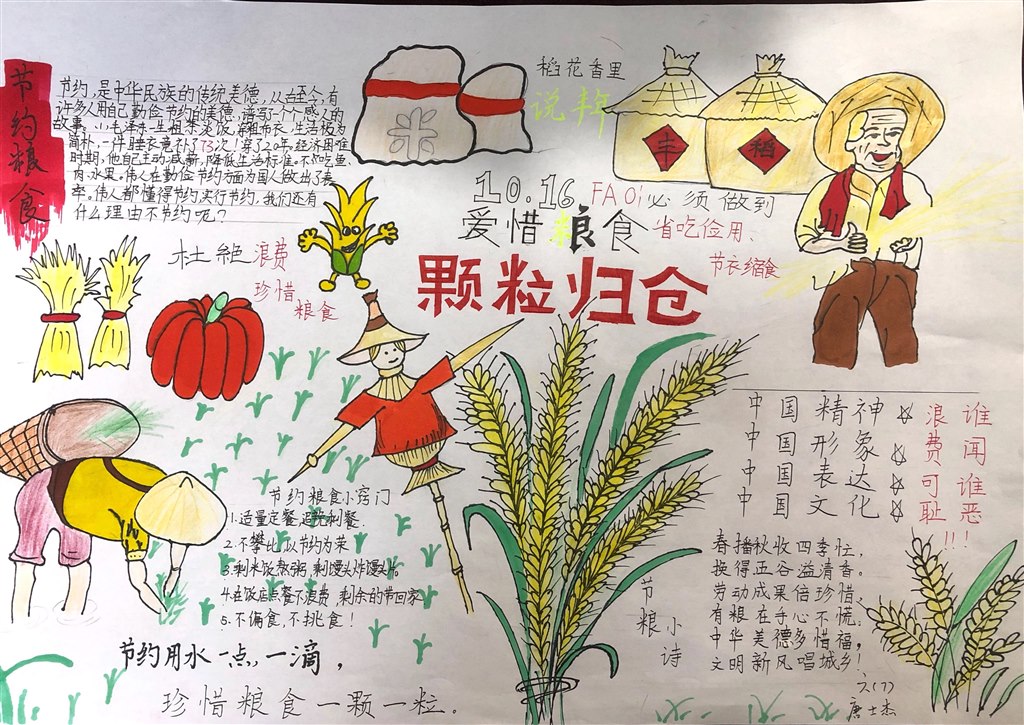 节约粮食
节约,是中华民族的传统美德,从古至今,有
许多人用自己勤俭节约的美德,谱写一个个感人的
故事。
毛泽东一生粗茶淡饭,
生活极为
简朴,一件睡衣竟补了73次!穿了20年。经济困难
时期,他自己主动减薪,降低生活标准。不吃鱼
肉、水果。伟人在勤俭节约方面为国人做出了表
率。伟人都懂得节约,实行节约,我们还有
什么理由不节约呢?
米
稻花香里
说丰年
丰
稻
10.16 FAOi必须做到
爱惜粮食 省吃俭用、
节衣缩食
颗粒归仓
杜绝浪费
珍惜
粮食
中国精神
中国形象
中国表达
中国文化
浪费可耻
谁闻谁恶
!!!
节约粮食小窍门
1.适量定餐,避免剩餐.
2.不攀比,以节约为荣
3.剩米饭熬粥,剩馒头炸馒头。
4.在饭店点餐不浪费,剩余的带回家
5.不偏食,不挑食!
节粮小诗
春播秋收四季忙,
换得五谷溢清香。
劳动成果倍珍惜,
有粮在手心不慌。
中华美德多惜福,
文明新风唱城乡!
六(7)
唐士杰
节约用水一点,一滴,
珍惜粮食一颗一粒。